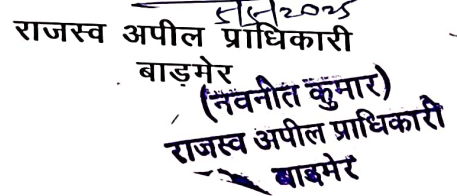 5/5/2025
राजस्व अपील प्राधिकारी
बाड़मेर
(नवनीत कुमार)
राजस्व अपील प्राधिकारी
बाड़मेर